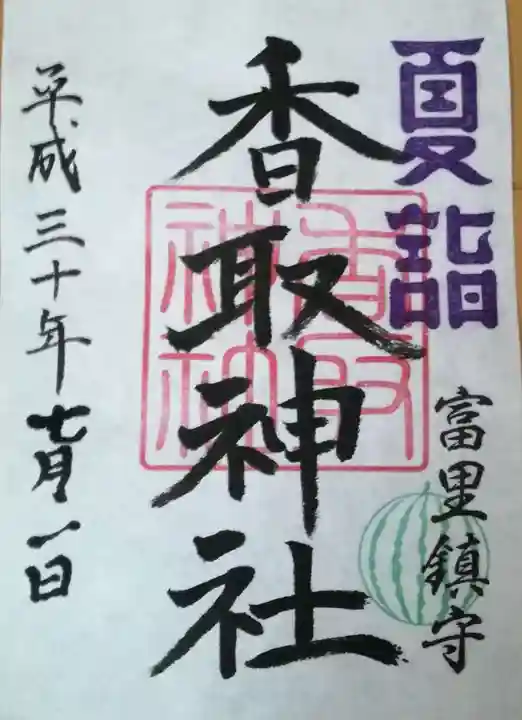 夏詣
富里鎮守
香取神社
平成三十年七月一日